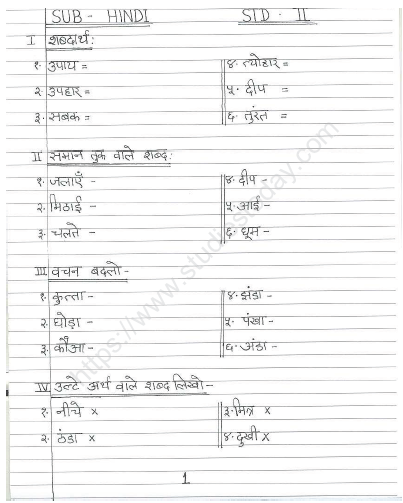 SUB - HINDI STD - II
I शब्दार्थ:
१. उपाय = ४. त्योहार =
२. उपहार = ५. दीप =
३. सबक = ६. तुरंत =
II समान तुक वाले शब्द:
१. जलाएँ - ४. दीप -
२. मिठाई - ५. आई -
३. चलते - ६. धूम -
III वचन बदलो -
१. कुत्ता - ४. झंडा -
२. घोड़ा - ५. पंखा -
३. कौआ - ६. अंडा -
IV उल्टे अर्थ वाले शब्द लिखो -
१. नीचे x ३. मित्र x
२. ठंडा x ४. दुखी x
1
https://www.studiestoday.com